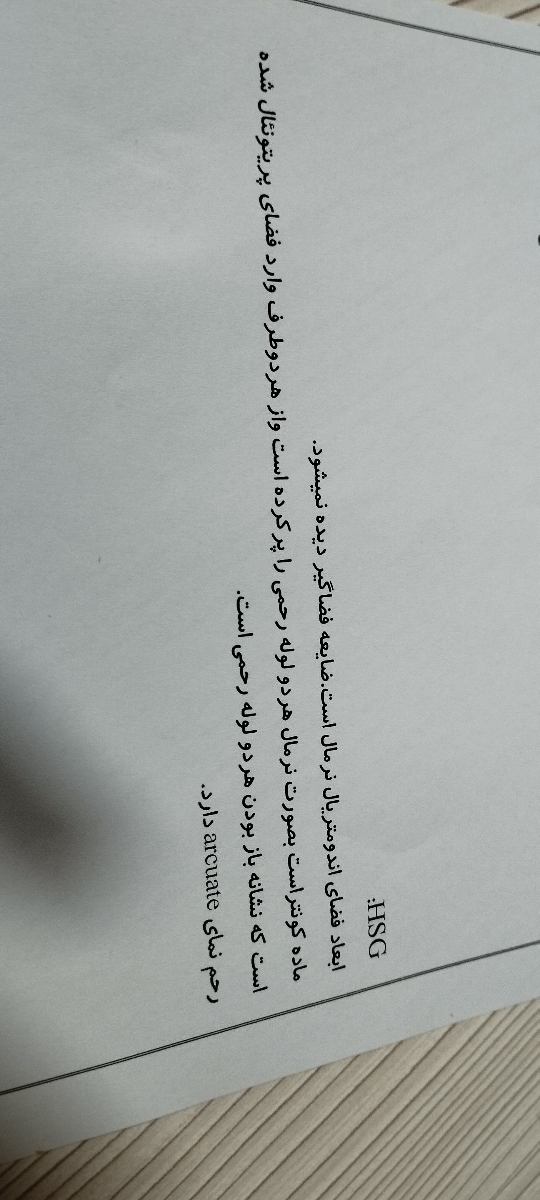 HSG:
ابعاد فضای اندومتریال نرمال است.ضایعه فضاگیر دیده نمیشود.
ماده کونتراست بصورت نرمال هردو لوله رحمی را پر کرده است واز هردوطرف وارد فضای پریتونئال شده
است که نشانه باز بودن هردو لوله رحمی است.
رحم نمای arcuate دارد.